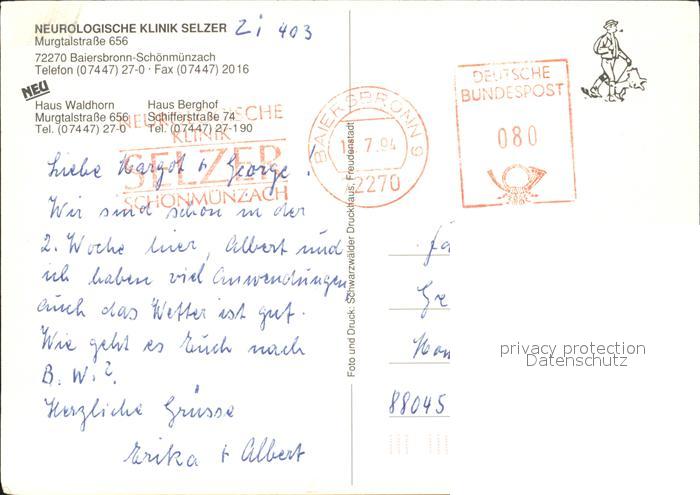 NEUROLOGISCHE KLINIK SELZER Zi 403
Murgtalstraße 656
72270 Baiersbronn-Schönmünzach
Telefon (07447) 27-0 · Fax (07447) 2016
NEU
Haus Waldhorn Haus Berghof
Murgtalstraße 656 Schifferstraße 74
Tel. (07447) 27-0 Tel. (07447) 27-190
NEUROLOGISCHE
KLINIK
SELZER
SCHÖNMÜNZACH
BAIERSBRONN 9
7.94
72270
DEUTSCHE
BUNDESPOST
080
Liebe Margot + George!
Wir sind schon in der
2. Woche hier, Albert und
ich haben viel Anwendungen
auch das Wetter ist gut.
Wie geht es Euch nach
B. W.?
Herzliche Grüsse
Erika + Albert
Foto und Druck: Schwarzwälder Druckhaus, Freudenstadt
88045
privacy protection
Datenschutz